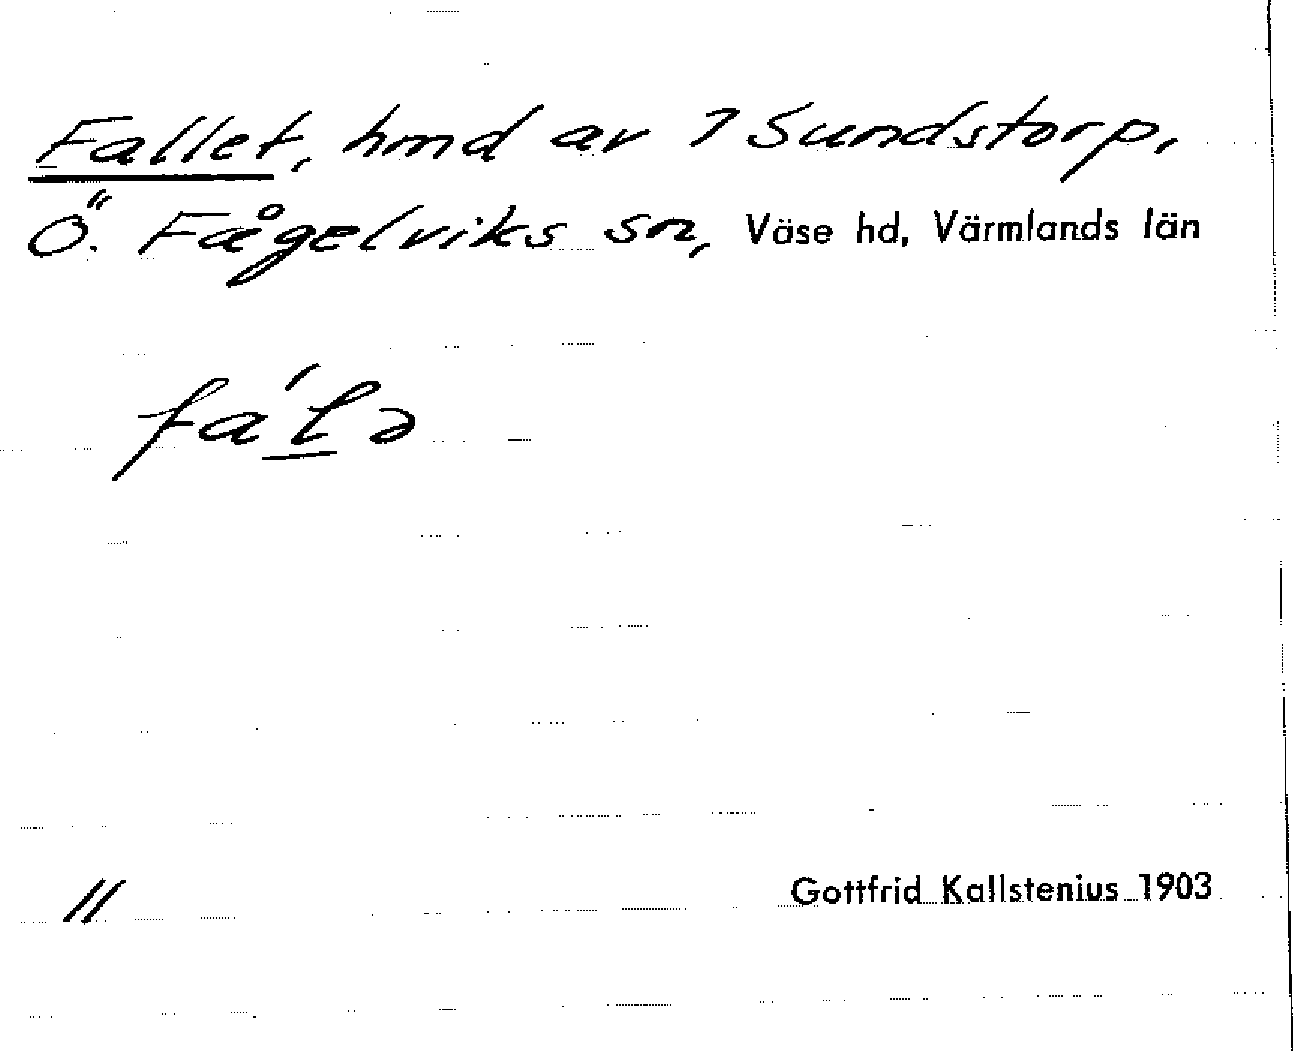 Fallet, hmd av 7 Sundstorp,
Ö. Fågelviks sn, Väse hd, Värmlands län
fa´lə
11 Gottfrid Kallstenius 1903